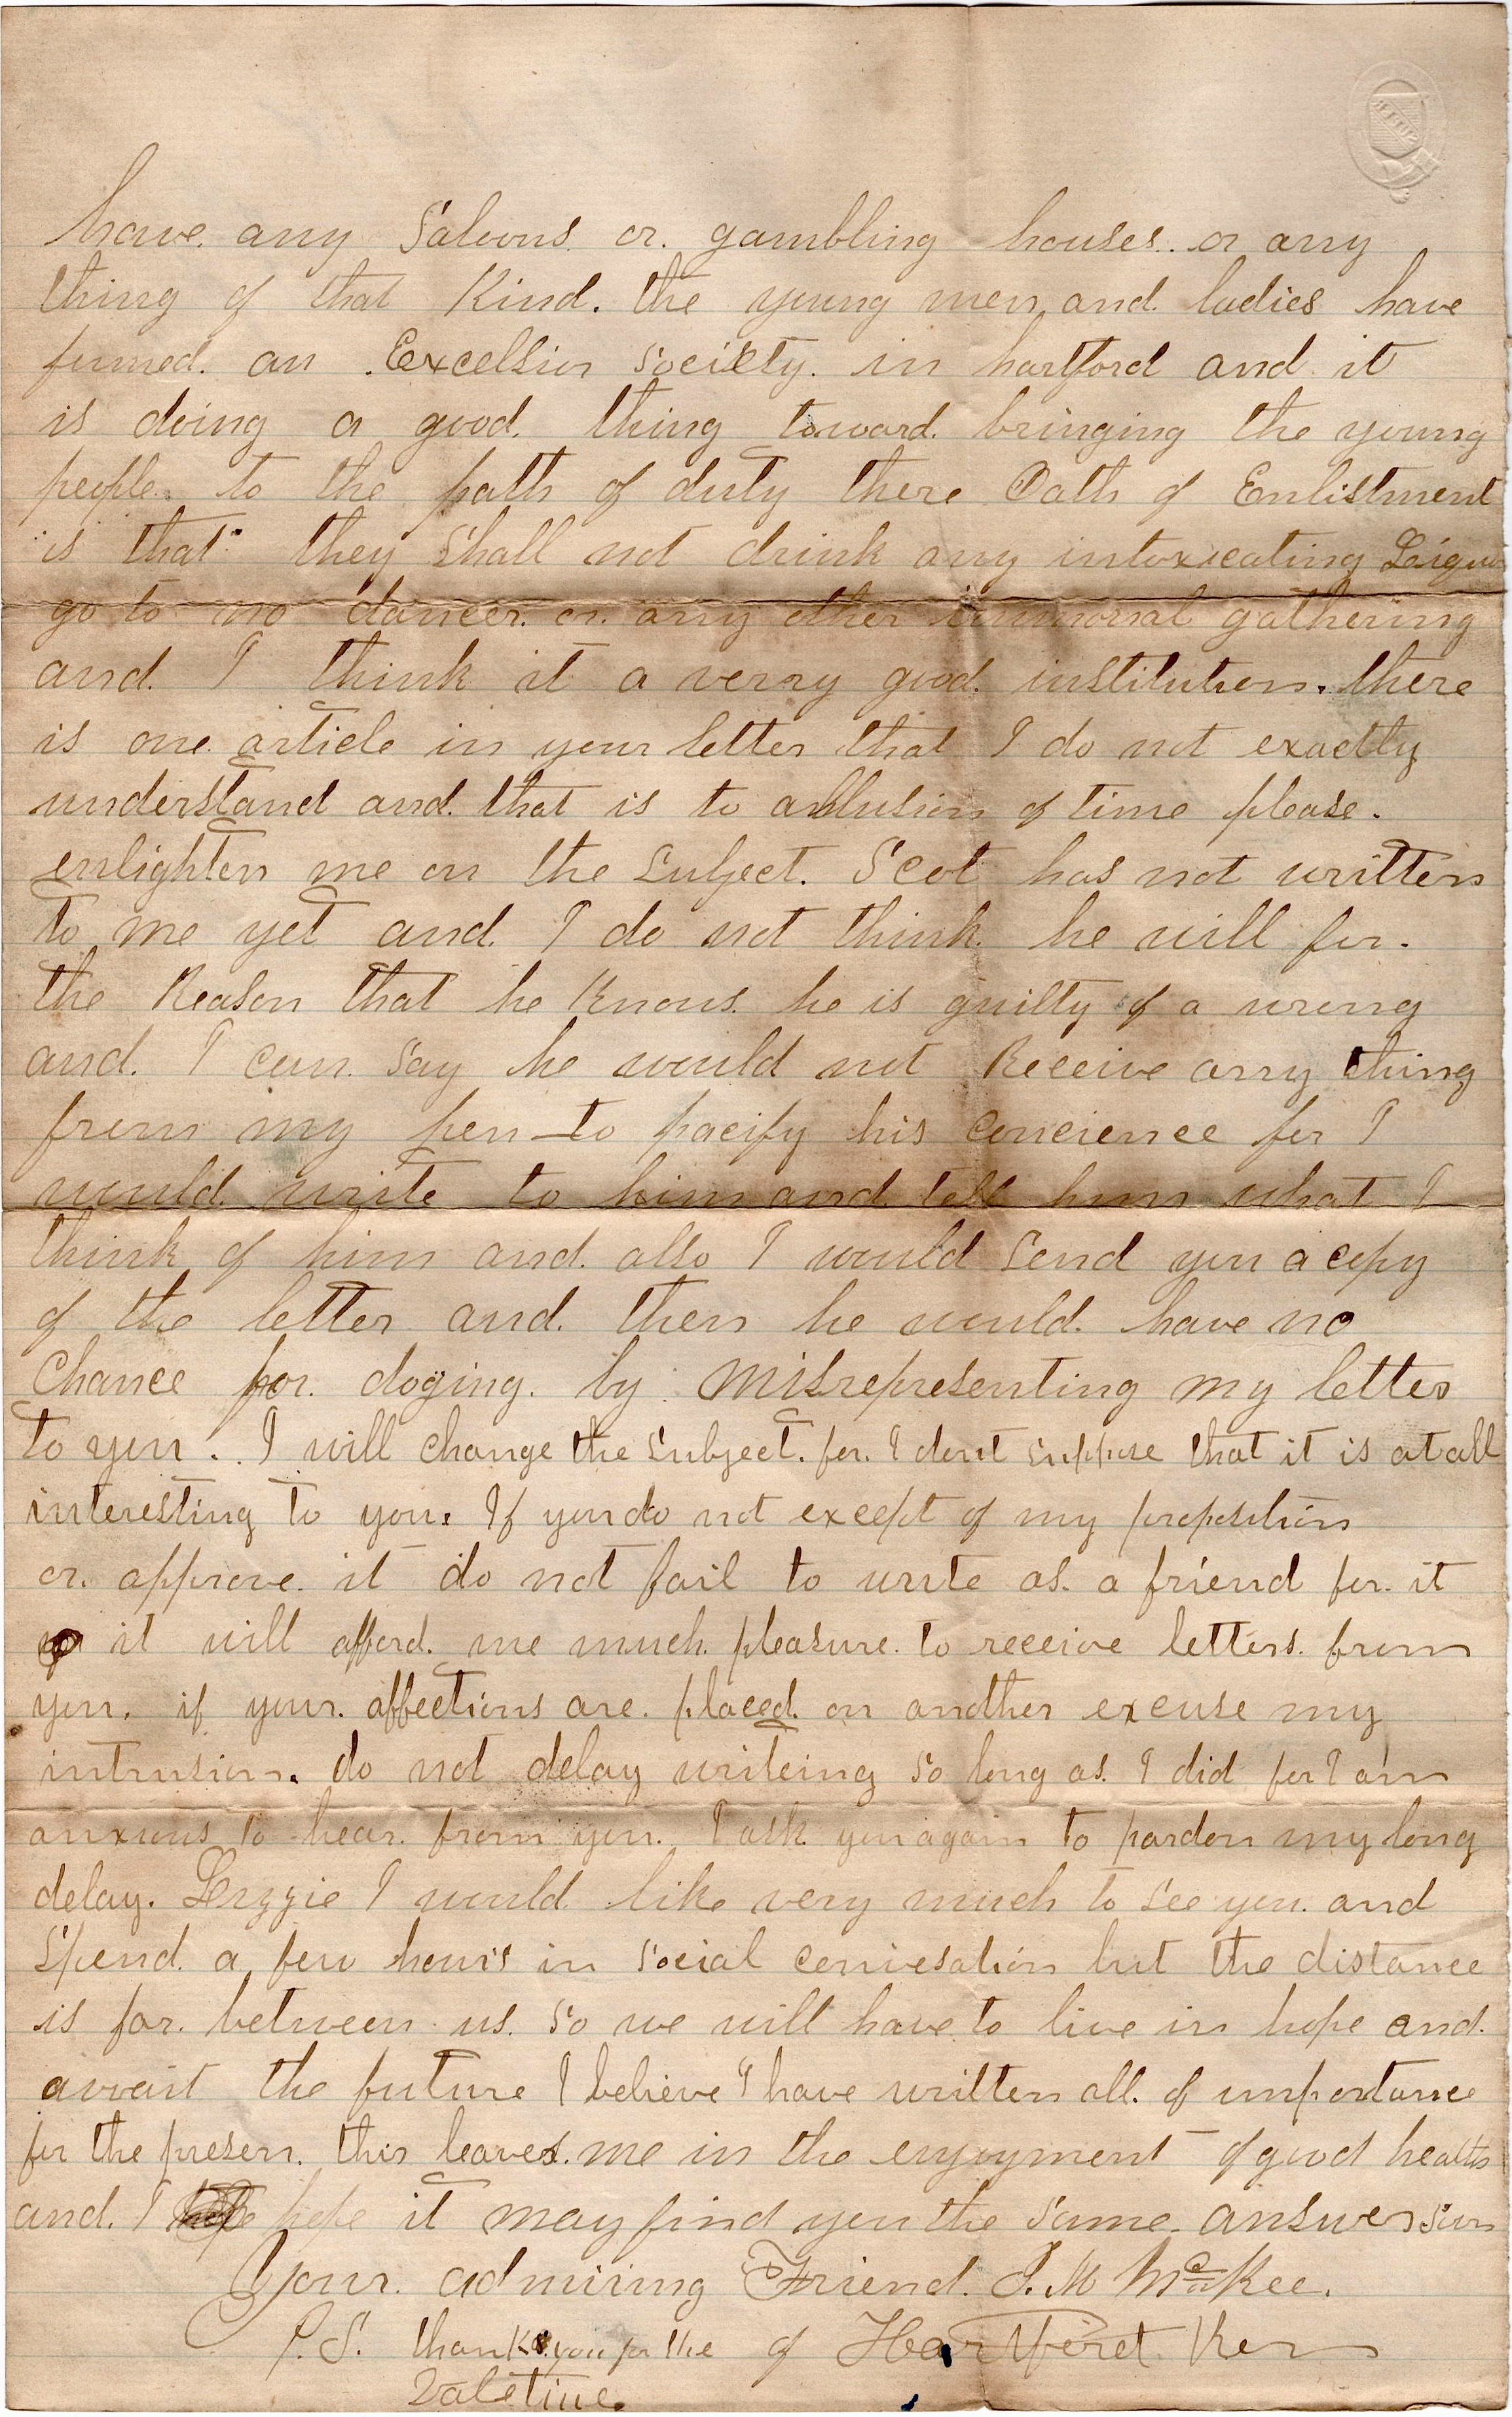 have any Saloons or gambling houses or any
thing of that Kind. the young men and ladies have
formed an Excelsior Society in hartford and it
is doing a good thing toward bringing the young
people to the path of duty there Oath of Enlistment
is that they Shall not drink any intoxicating Liquor
go to no dances or any other immoral gathering
and I think it a verry good institution. there
is one article in your letter that I do not exactly
understand and that is to allusion of time please.
enlighten me on the Subject. Scot has not written
to me yet and I do not think he will for.
the Reason that he Knows he is guilty of a wrong
and I can Say he would not Receive any thing
from my pen to pacify his concience for I
would write to him and tell him what I
think of him and also I would Send you a copy
of the letter and then he would have no
Chance for doging by Misrepresenting my letter
to you. I will change the Subject. for I dont Suppose that it is at all
interesting to you. If you do not except of my proposition
or approve it do not fail to write as a friend for it
it will afford me much pleasure to receive letters from
you. if your affections are placed on another excuse my
intrusion. do not delay writeing So long as I did for I am
anxious to hear from you. I ask you again to pardon my long
delay. Lizzie I would like very much to See you and
Spend a few hours in Social convesation but the distance
is far between us So we will have to live in hope and
await the future I believe I have written all of importance
for the presen. this leaves me in the enjoyment of good health
and I hope it may find you the Same. answer Soon
Your admiring Friend. J. M McKee.
P. S. thank you for the of Hartford Ken
Valetine.